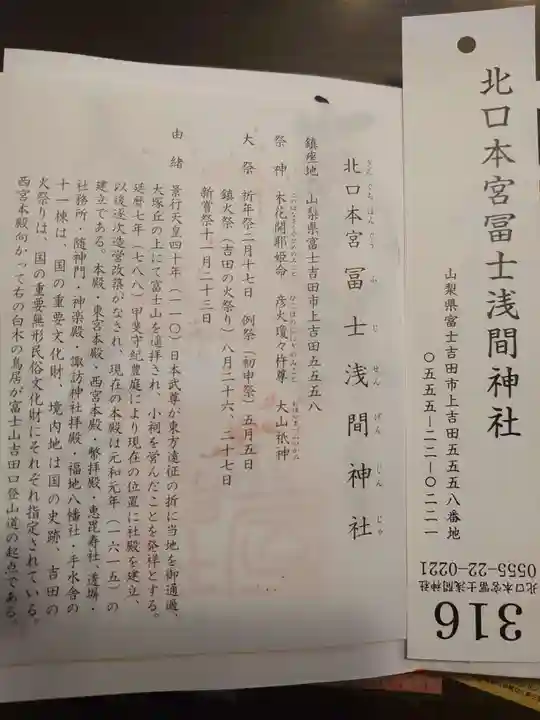 北口本宮冨士浅間神社
山梨県富士吉田市上吉田五五五八番地
〇五五五―二二―〇二二一
北口本宮冨士浅間神社
0555-22-0221
316
きたぐちほんぐう ふじせんげんじんじゃ
北口本宮 冨士浅間神社
鎮座地 山梨県富士吉田市上吉田五五五八
祭神 木花開耶姫命 彦火瓊々杵尊 大山祇神
大祭 祈年祭二月十七日 例祭(初申祭)五月五日
鎮火祭(吉田の火祭り)八月二十六、二十七日
新嘗祭十一月二十三日
由緒 景行天皇四十年(一一〇)日本武尊が東方遠征の折に当地を御通過、
大塚丘の上にて富士山を遥拝され、小祠を営んだことを発祥とする。
延暦七年(七八八)甲斐守紀豊庭により現在の位置に社殿を建立、
以後逐次造営改築がなされ、現在の本殿は元和元年(一六一五)の
建立である。本殿・東宮本殿・西宮本殿・幣拝殿・恵毘寿社・透塀・
社務所・随神門・神楽殿・諏訪神社拝殿・福地八幡社・手水舎の
十一棟は、国の重要文化財、境内地は国の史跡、吉田の
火祭りは、国の重要無形民俗文化財にそれぞれ指定されている。
西宮本殿向かって右の白木の鳥居が富士山吉田口登山道の起点である。